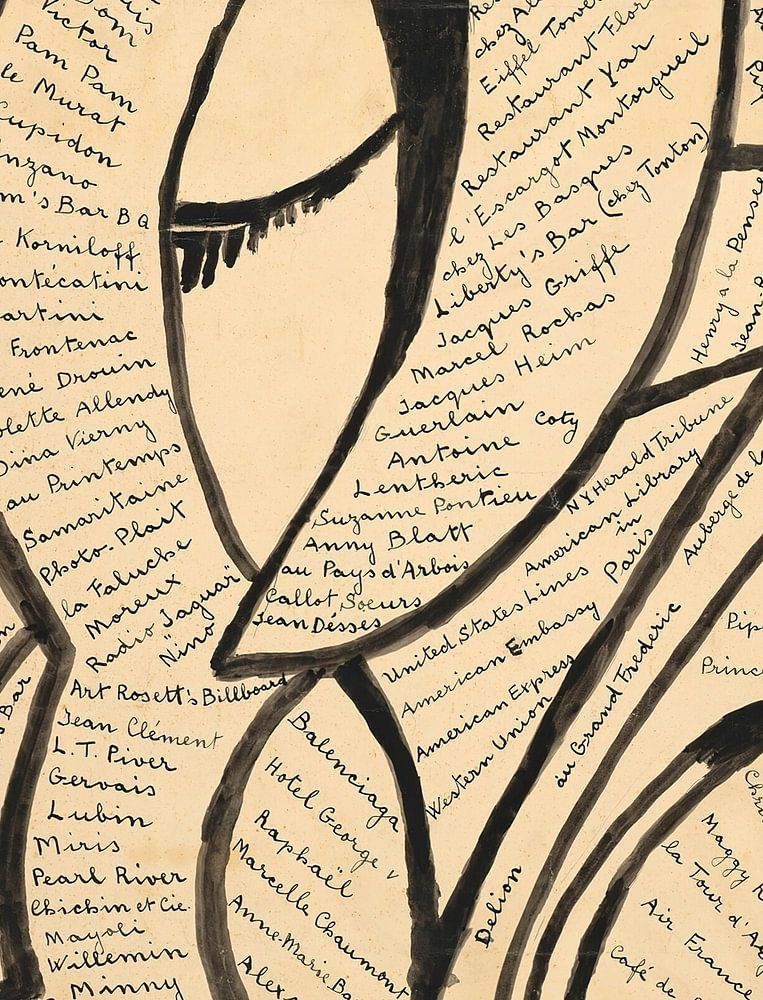 Victor
Pam Pam
le Murat
Cupidon
m's Bar B Q
Korniloff
Frontenac
Drouin
Allendy
Dina Vierny
au Printemps
Samaritaine
Photo-Plait
la Faluche
Moreux
Radio "Jaguar"
"Nino"
Art Rosett's Billboard
Jean Clément
L.T. Piver
Gervais
Lubin
Miris
Pearl River
Chichin et Cie.
Mayoli
Willemin
Minny
Bar
Eiffel Tower
Restaurant Flor
Restaurant Yar
l'Escargot Montorgueil
chez Les Basques
Liberty's Bar (chez Tonton)
Jacques Griffe
Marcel Rochas
Jacques Heim
Guerlain
Coty
Antoine
Lentheric
Suzanne Pontieu
Anny Blatt
au Pays d'Arbois
Callot Soeurs
Jean Désses
Henry à la Pensée
NY Herald Tribune
American Library
in
Paris
United States Lines
American Embassy
American Express
Western Union
Auberge de la
au Grand Frederic
Delion
Balenciaga
Hotel George V
Raphaël
Marcelle Chaumont
Anne-Marie
Maggy
la Tour d'
Air France
Café de